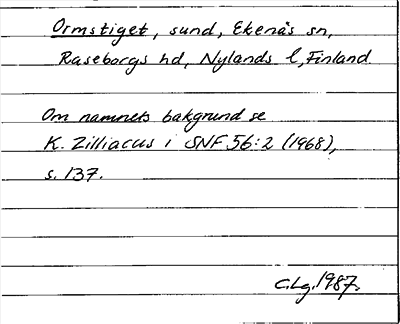 Ormstiget, sund, Ekenäs sn,
Raseborgs hd, Nylands l, Finland
Om namnets bakgrund se
K. Zilliacus i SNF 56:2 (1968),
s. 137.
C.Lg. 1987.